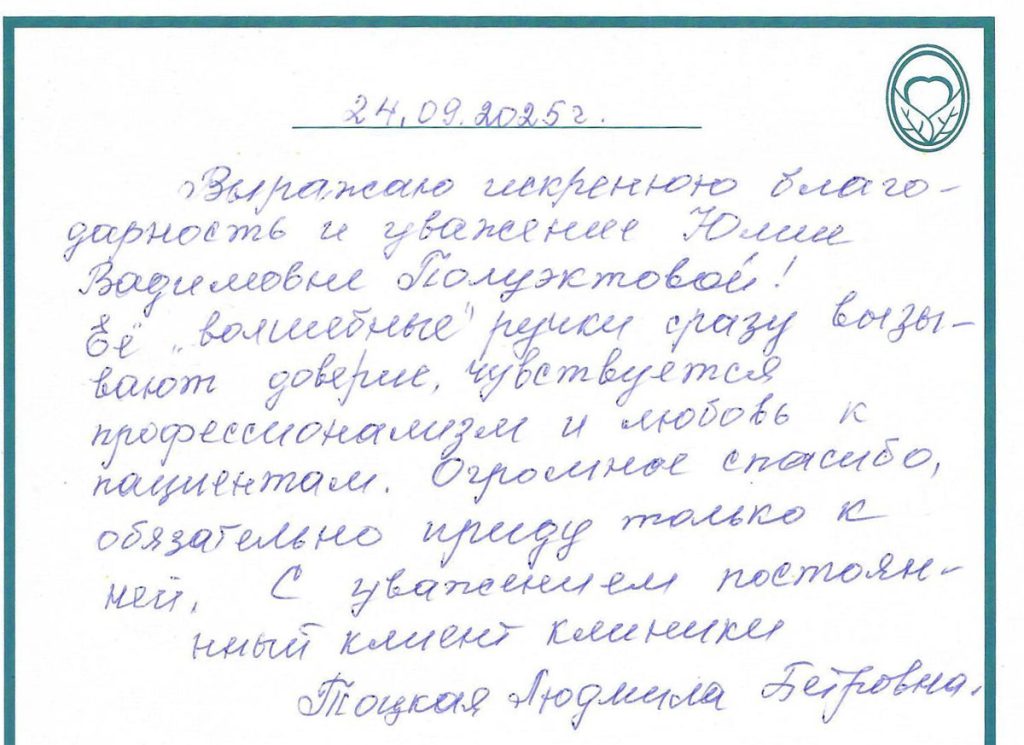 24.09.2025г.
Выражаю искреннюю благо-
дарность и уважение Юлии
Вадимовне Полуэктовой!
Её „волшебные" ручки сразу вызы-
вают доверие, чувствуется
профессионализм и любовь к
пациентам. Огромное спасибо,
обязательно приду только к
ней. С уважением постоян-
нный клиент клиники
Тоцкая Людмила Петровна.